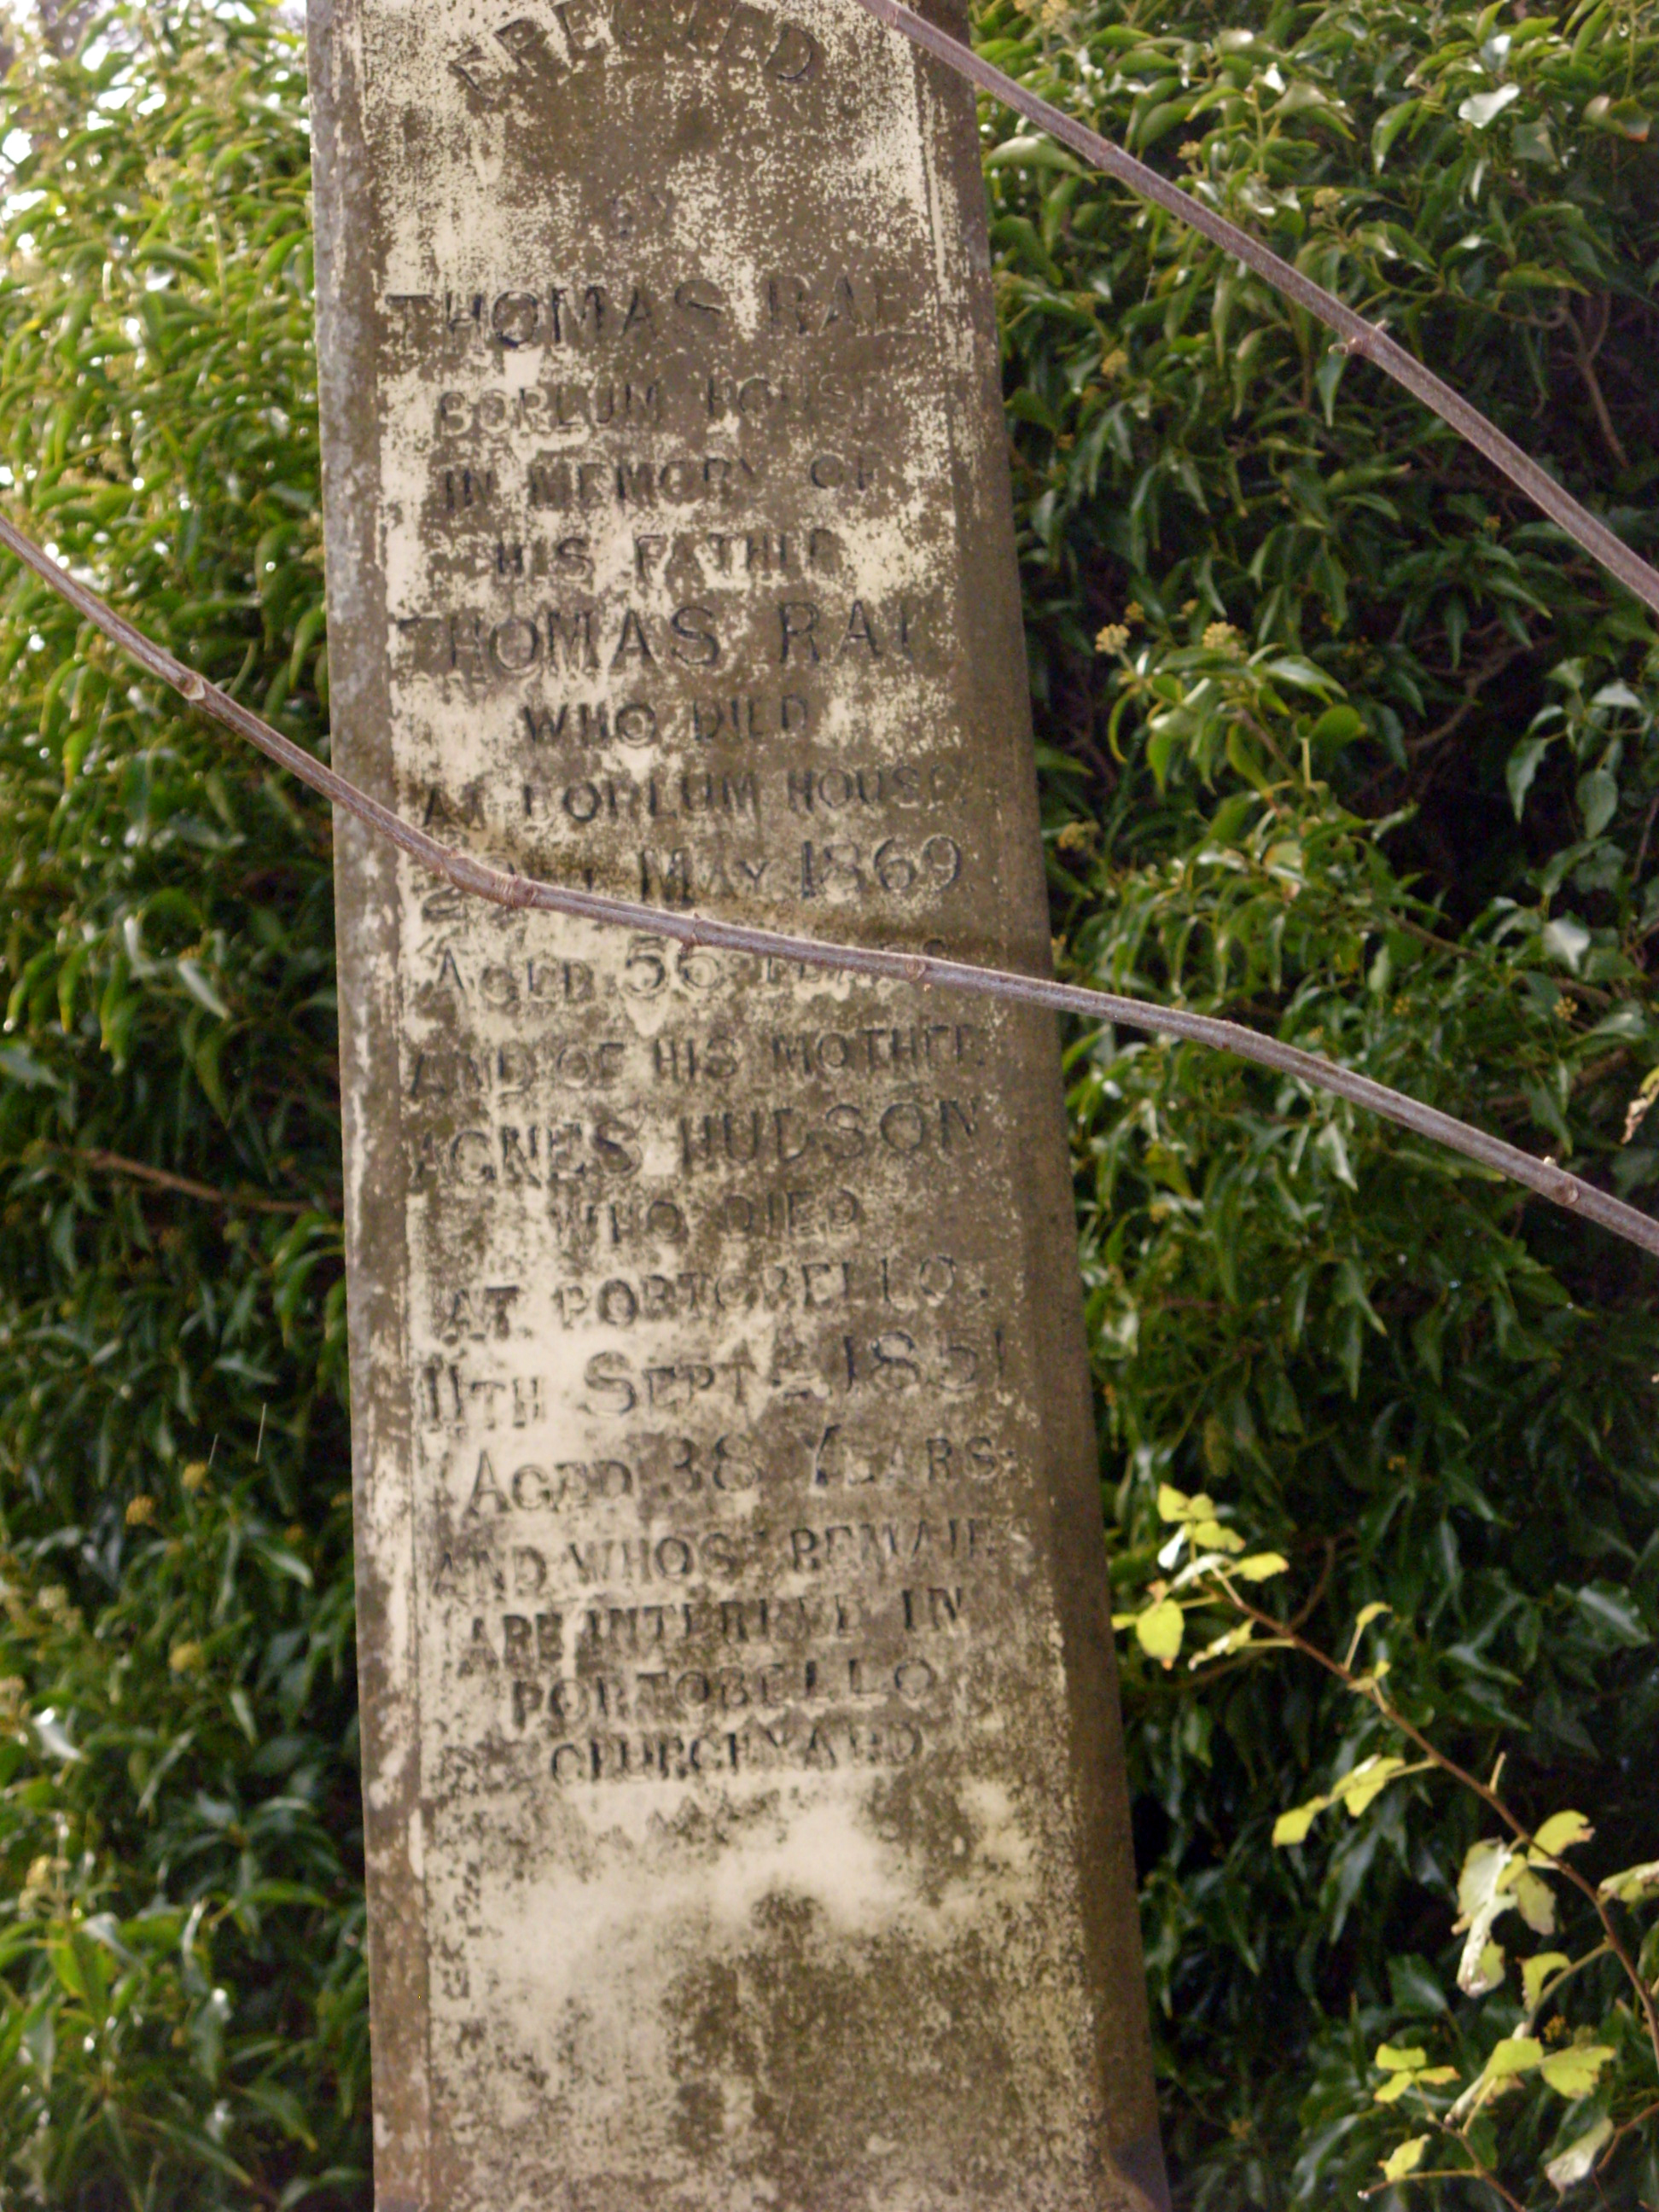 ERECTED
BY
THOMAS RAE
BORLUM HOUSE
IN MEMORY OF
HIS FATHER
THOMAS RAE
WHO DIED
AT BORLUM HOUSE
MAY 1869
AGED 56 YEARS
AND OF HIS MOTHER
AGNES HUDSON
WHO DIED
AT PORTOBELLO.
11TH SEPTR 1851
AGED 38 YEARS.
AND WHOSE REMAINS
ARE INTERRED IN
PORTOBELLO
CHURCHYARD